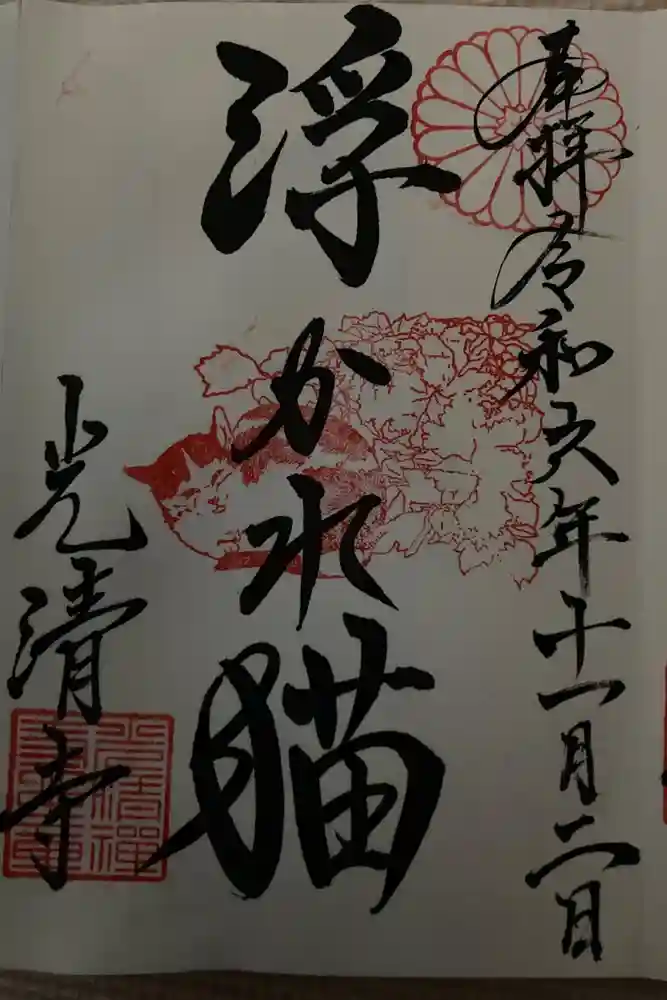 奉拝 令和六年十一月二日
浮かれ猫
光清寺